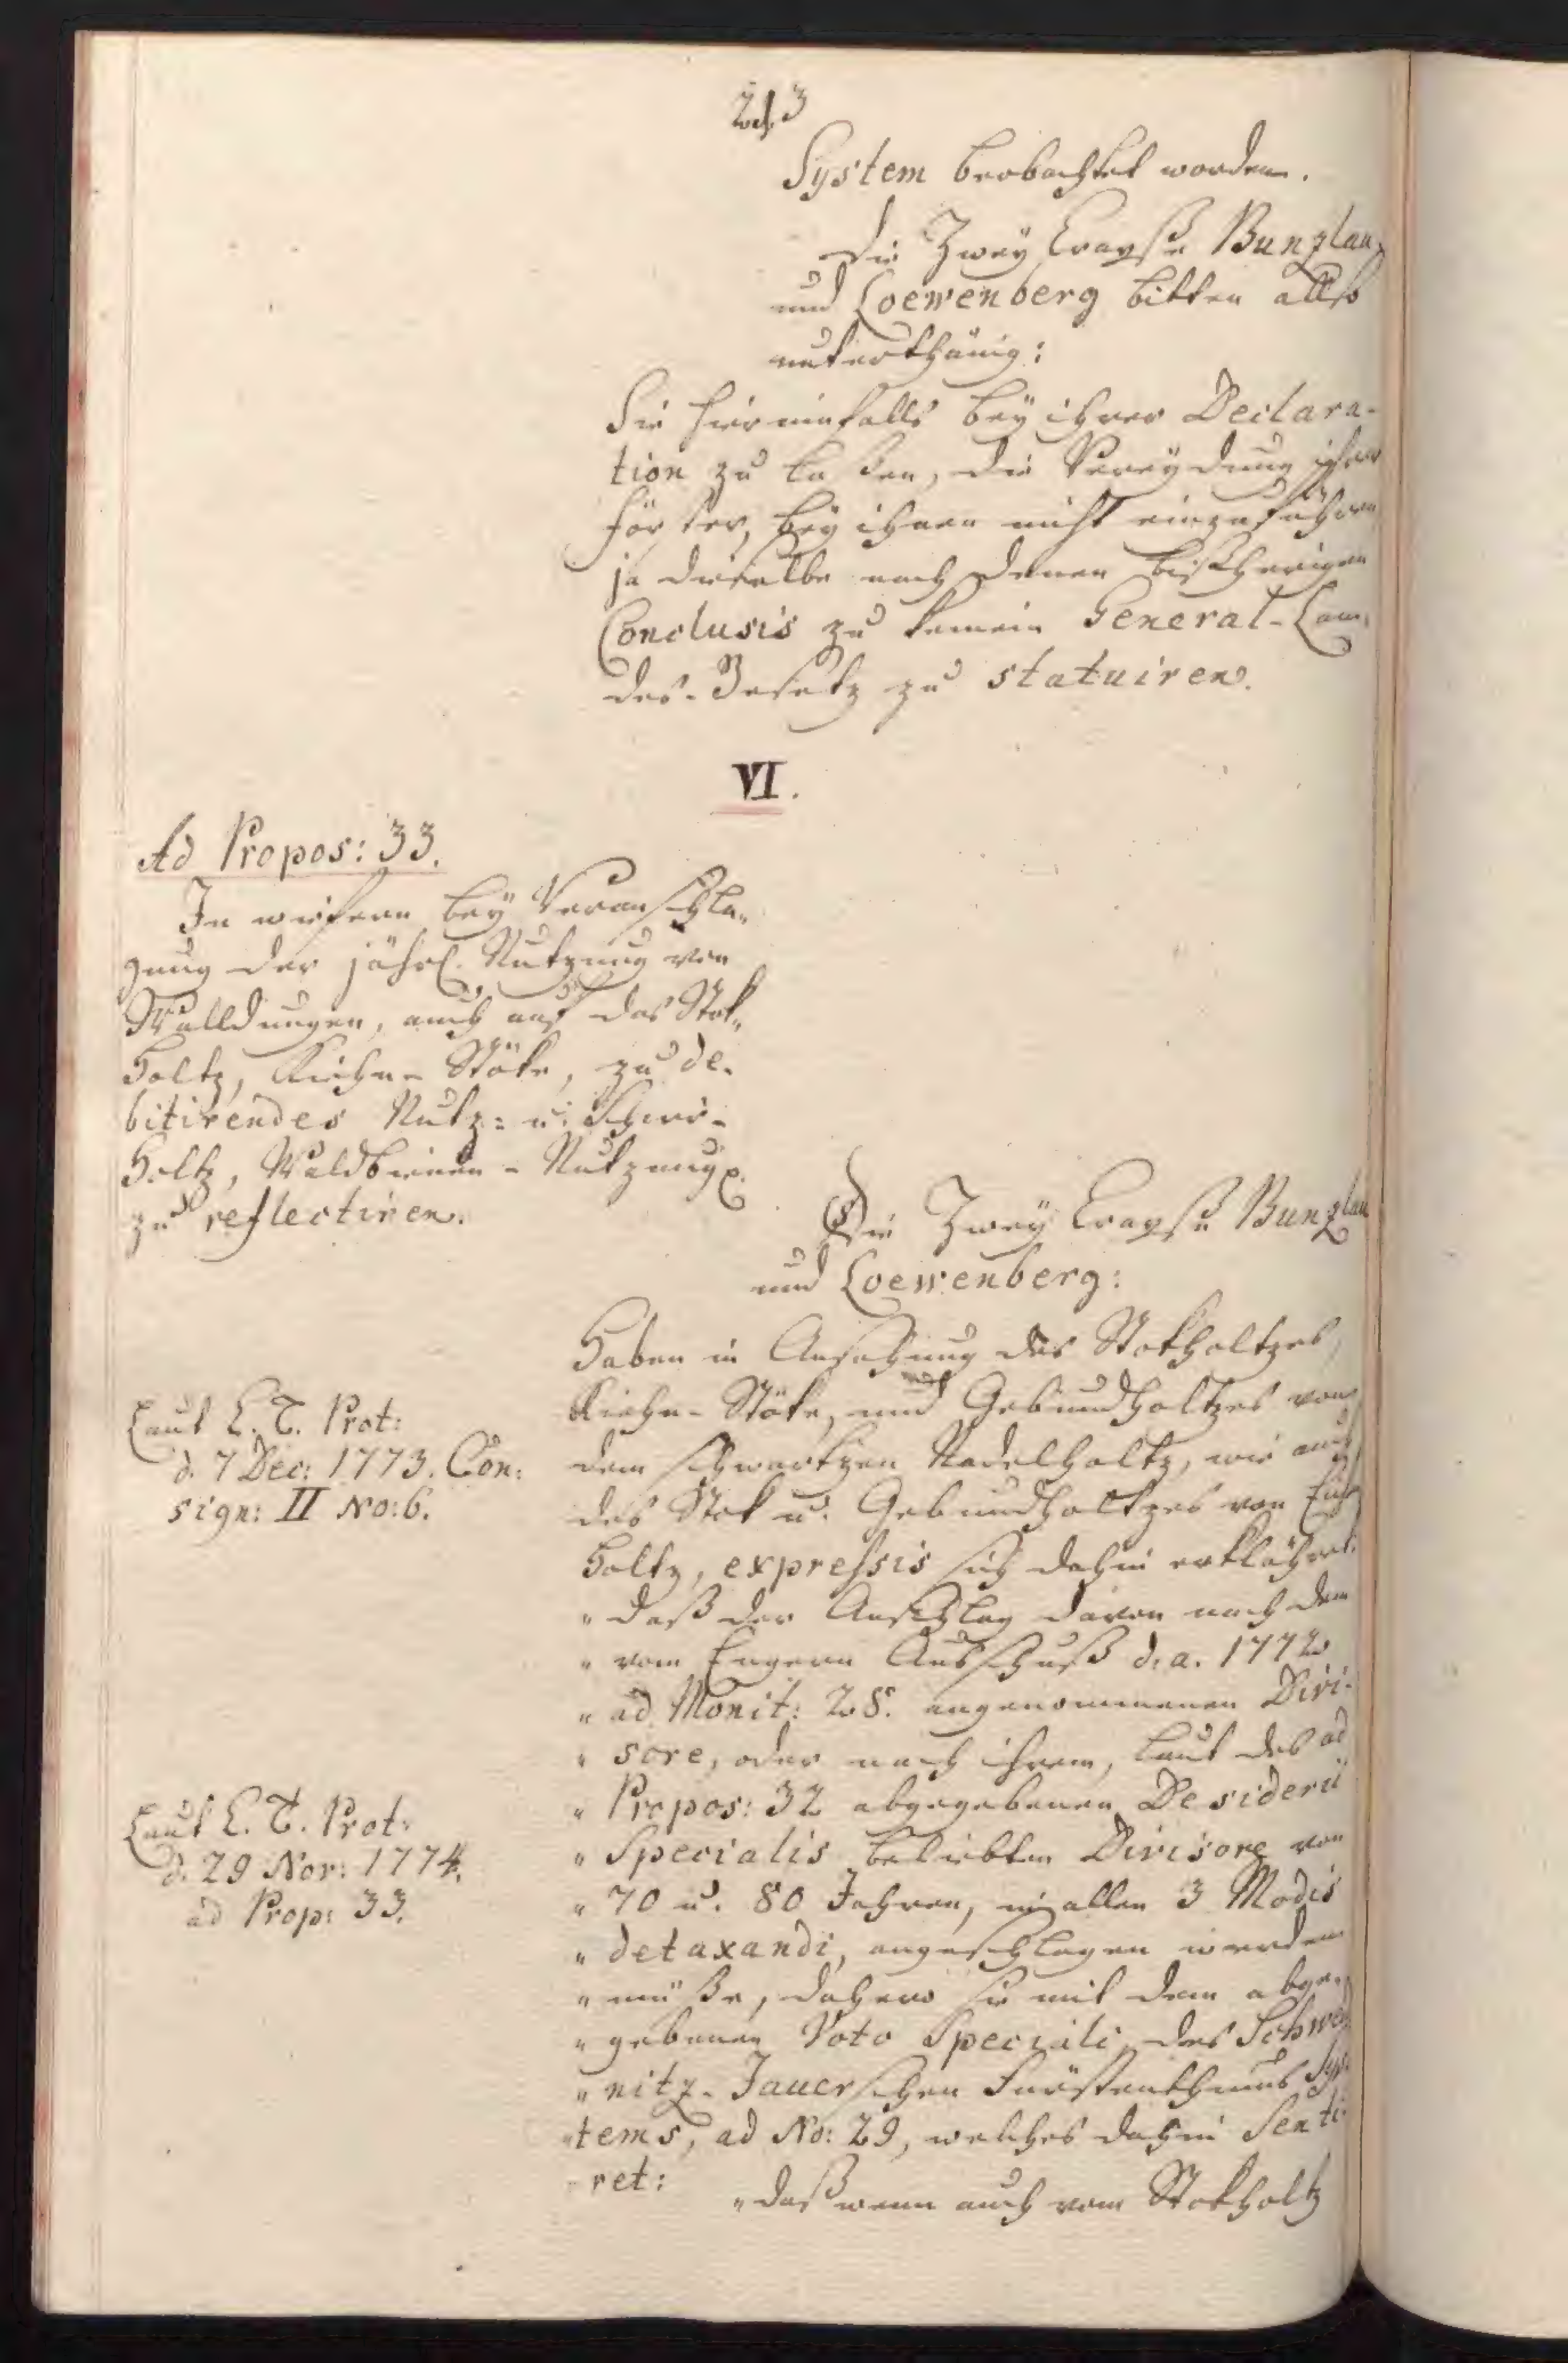 243
System beobachtet worden.
Die Zwey Crayße Bunzlau
und Loewenberg bitten also
unterthänig:
Sie hierinnfalls bey ihrer Declara-
tion zu laßen, die Vereydung ihrer
Förster, bey ihnen nicht einzuführen
ja dieselbe nach denen bißherigen
Conclusis zu keinem General-Lan-
des-Gesetz zu statuiren.
VI.
Ad Propos: 33.
In wiefern bey Veranschla-
gung der jährl. Nutzung von
Walldungen, auch auf das Stok-
Holtz, Kiehn-Stöke, zu de-
bitirendes Nutz- u. Schirr-
Holtz, Waldbienen-Nutzung
zu reflectiren.
Die Zwey Crayße Bunzlau
und Loewenberg:
Haben in Ansehung des Stokholtzes,
Kiehn-Stöke, und Gebundholtzes von
dem schwartzen Nadelholtz, wie auch
des Stok u. Gebundholtzes von Eich
Holtz, expressis sich dahin erklähret:
Laut E. T. Prot:
d. 7 Dec: 1773. Con-
sign: II No: 6.
"daß der Anschlag davon nach dem
"vom Engern Ausschuß d. a. 1772
"ad Monit: 28. angenommenen Divi-
"sore, oder nach ihrem, laut des ad
"Propos: 32 abgegebenen Desiderii
"Specialis beliebten Divisore von
"70 u. 80 Jahren, in allen 3 Modis
"detaxandi, angeschlagen werden
"müße, dahero sie mit dem abge-
"gebenen Voto Speciali des Schwei-
"nitz-Jauerschen Fürstenthums Sys-
"tems, ad No: 29, welches dahin Senti-
ret:
Laut E. T. Prot:
d. 29 Nov: 1774.
ad Prop: 33.
"daß wenn auch vom Stokholtz